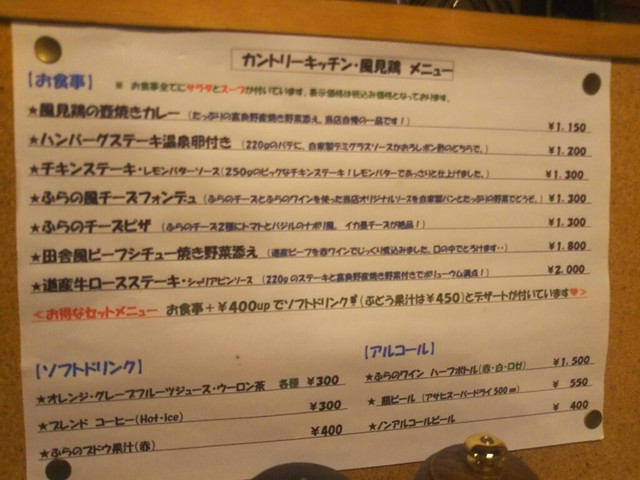 カントリーキッチン・風見鶏 メニュー
【お食事】 ※ お食事全てにサラダとスープが付いています。表示価格は税込み価格となっております。
★風見鶏の壺焼きカレー (たっぷりの富良野産焼き野菜添え。当店自慢の一品です!) ¥1.150
★ハンバーグステーキ温泉卵付き (220gのパテに、自家製デミグラスソースかおろしポン酢のどちらで。) ¥1.200
★チキンステーキ・レモンバターソース(250gのビッグなチキンステーキ!レモンバターであっさりと仕上げました。) ¥1.300
★ふらの風チーズフォンデュ (ふらのチーズとふらのワインを使った当店オリジナルソースを自家製パンとたっぷりの野菜でどうぞ。) ¥1.300
★ふらのチーズピザ (ふらのチーズ2種にトマトとバジルのナポリ風。 イカ墨チーズが絶品!) ¥1.300
★田舎風ビーフシチュー焼き野菜添え (道産ビーフを赤ワインでじっくり煮込みました。口の中でとろけます・・) ¥1.800
★道産牛ロースステーキ・シャリアピンソース (220gのステーキと富良野産焼き野菜付きでボリューム満点!) ¥2.000
<お得なセットメニュー お食事+¥400upでソフトドリンク(ぶどう果汁は¥450)とデザートが付いています♥>
【ソフトドリンク】
★オレンジ・グレープフルーツジュース・ウーロン茶 各種 ¥300
★ブレンド コーヒー(Hot・Ice) ¥300
★ふらのブドウ果汁(赤) ¥400
【アルコール】
★ふらのワイン ハーフボトル(赤・白・ロゼ) ¥1,500
★ 瓶ビール (アサヒスーパードライ500㎖) ¥ 550
★ノンアルコールビール ¥ 400